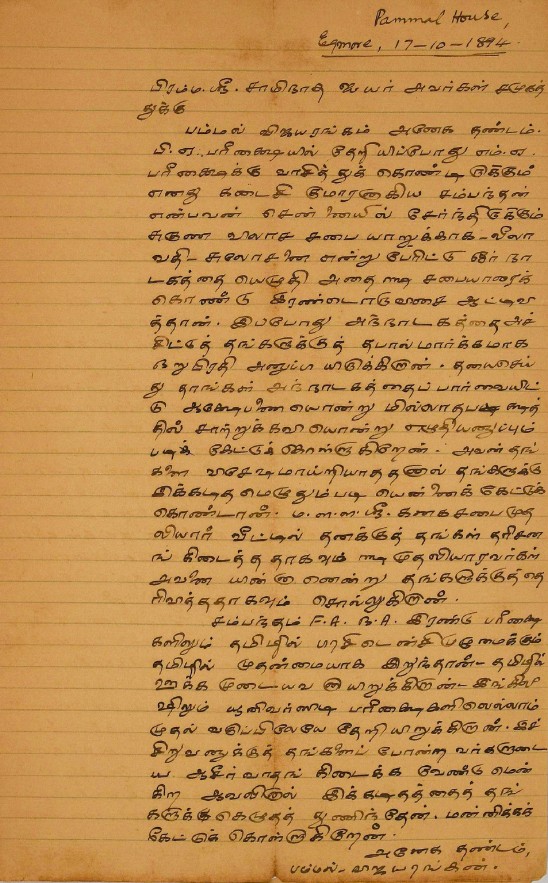 Pammal House,
Egmore, 17-10-1894.
பிரம்ம ஸ்ரீ. சாமிநாத ஐயர் அவர்கள் சமுகத்
துக்கு
பம்மல் விஜயரங்கம் அனேக தண்டம்.
பி. ஏ. பரீக்ஷையில் தேறியிப்போது எம். ஏ.
பரீக்ஷைக்கு வாசித்துக் கொண்டிருக்கும்
எனது கடைசி குமாரனாகிய சம்பந்தன்
என்பவன் சென்னையில் சேர்ந்திருக்கும்
சுகுண விலாச சபை யாருக்காக லீலா
வதி-சுலோசனை என்று பேரிட்டு ஓர் நா
டகத்தை யெழுதி அதை ௸ சபையாரைக்
கொண்டு இரண்டொருவிசை ஆட்டிவி
த்தான். இப்போது அந்நாடகத்தை அச்
சிட்டுத் தங்களுக்குத் தபால்மார்க்கமாக
ஒருபிரதி அனுப்பியிருக்கிறான். தயைசெய்
து தாங்கள் அந்நாடகத்தைப் பார்வையிட்
டு ஆக்ஷேபணை யொன்று மில்லாதபக்ஷத்
தில் சாற்றுக்கவி யொன்று எழுதியனுப்பும்
படிக் கேட்டுக்கொள்ளுகிறேன். அவன் தங்
களை விசேஷமாயறியாததனால் தங்களுக்கு
இக்கடித மெழுதும்படி யென்னைக் கேட்டுக்
கொண்டான். ம.ள.ள.ஸ்ரீ. கனகசபை முத
லியார் வீட்டில் தனக்குத் தங்கள் தரிசன
ங் கிடைத்ததாகவும் ௸ முதலியாரவர்கள்
அவனை யின்னானென்று தங்களுக்குத்தெ
ரிவித்ததாகவும் சொல்லுகிறான்.
சம்பந்தம் F.A. B.A. இரண்டு பரீக்ஷை
களிலும் தமிழில் பிரசிடென்சி முழுமைக்கும்
தமிழில் முதன்மையாக இருந்தான். தமிழில்
ஊக்க முடையவனாயிருக்கிறான். இங்கிலீ
ஷிலும் யூனிவர்ஸிடி பரீக்ஷைகளிலெல்லாம்
முதல் வகுப்பிலேயே தேறியிருக்கிறான். இச்
சிறுவனுக்குத் தங்களைப் போன்றவர்களுடை
ய ஆசீர்வாதங் கிடைக்க வேண்டுமென்
கிற ஆவலினால் இக்கடிதத்தைத் தங்
களுக்கெழுதத் துணிந்தேன். மன்னிக்கக்
கேட்டுக் கொள்ளுகிறேன்.
அனேக தண்டம்,
பம்மல்-விஜயரங்கன்.